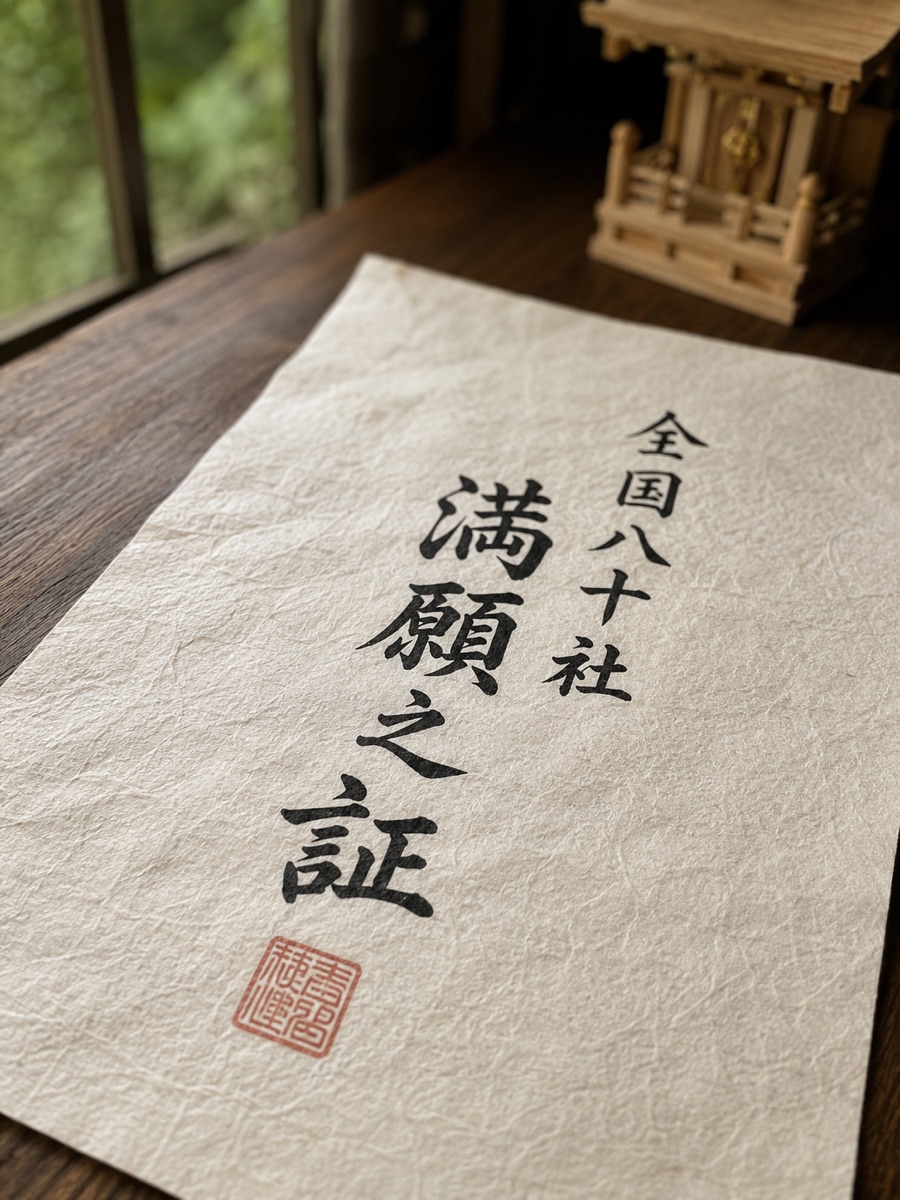 全国八十社
満願之証